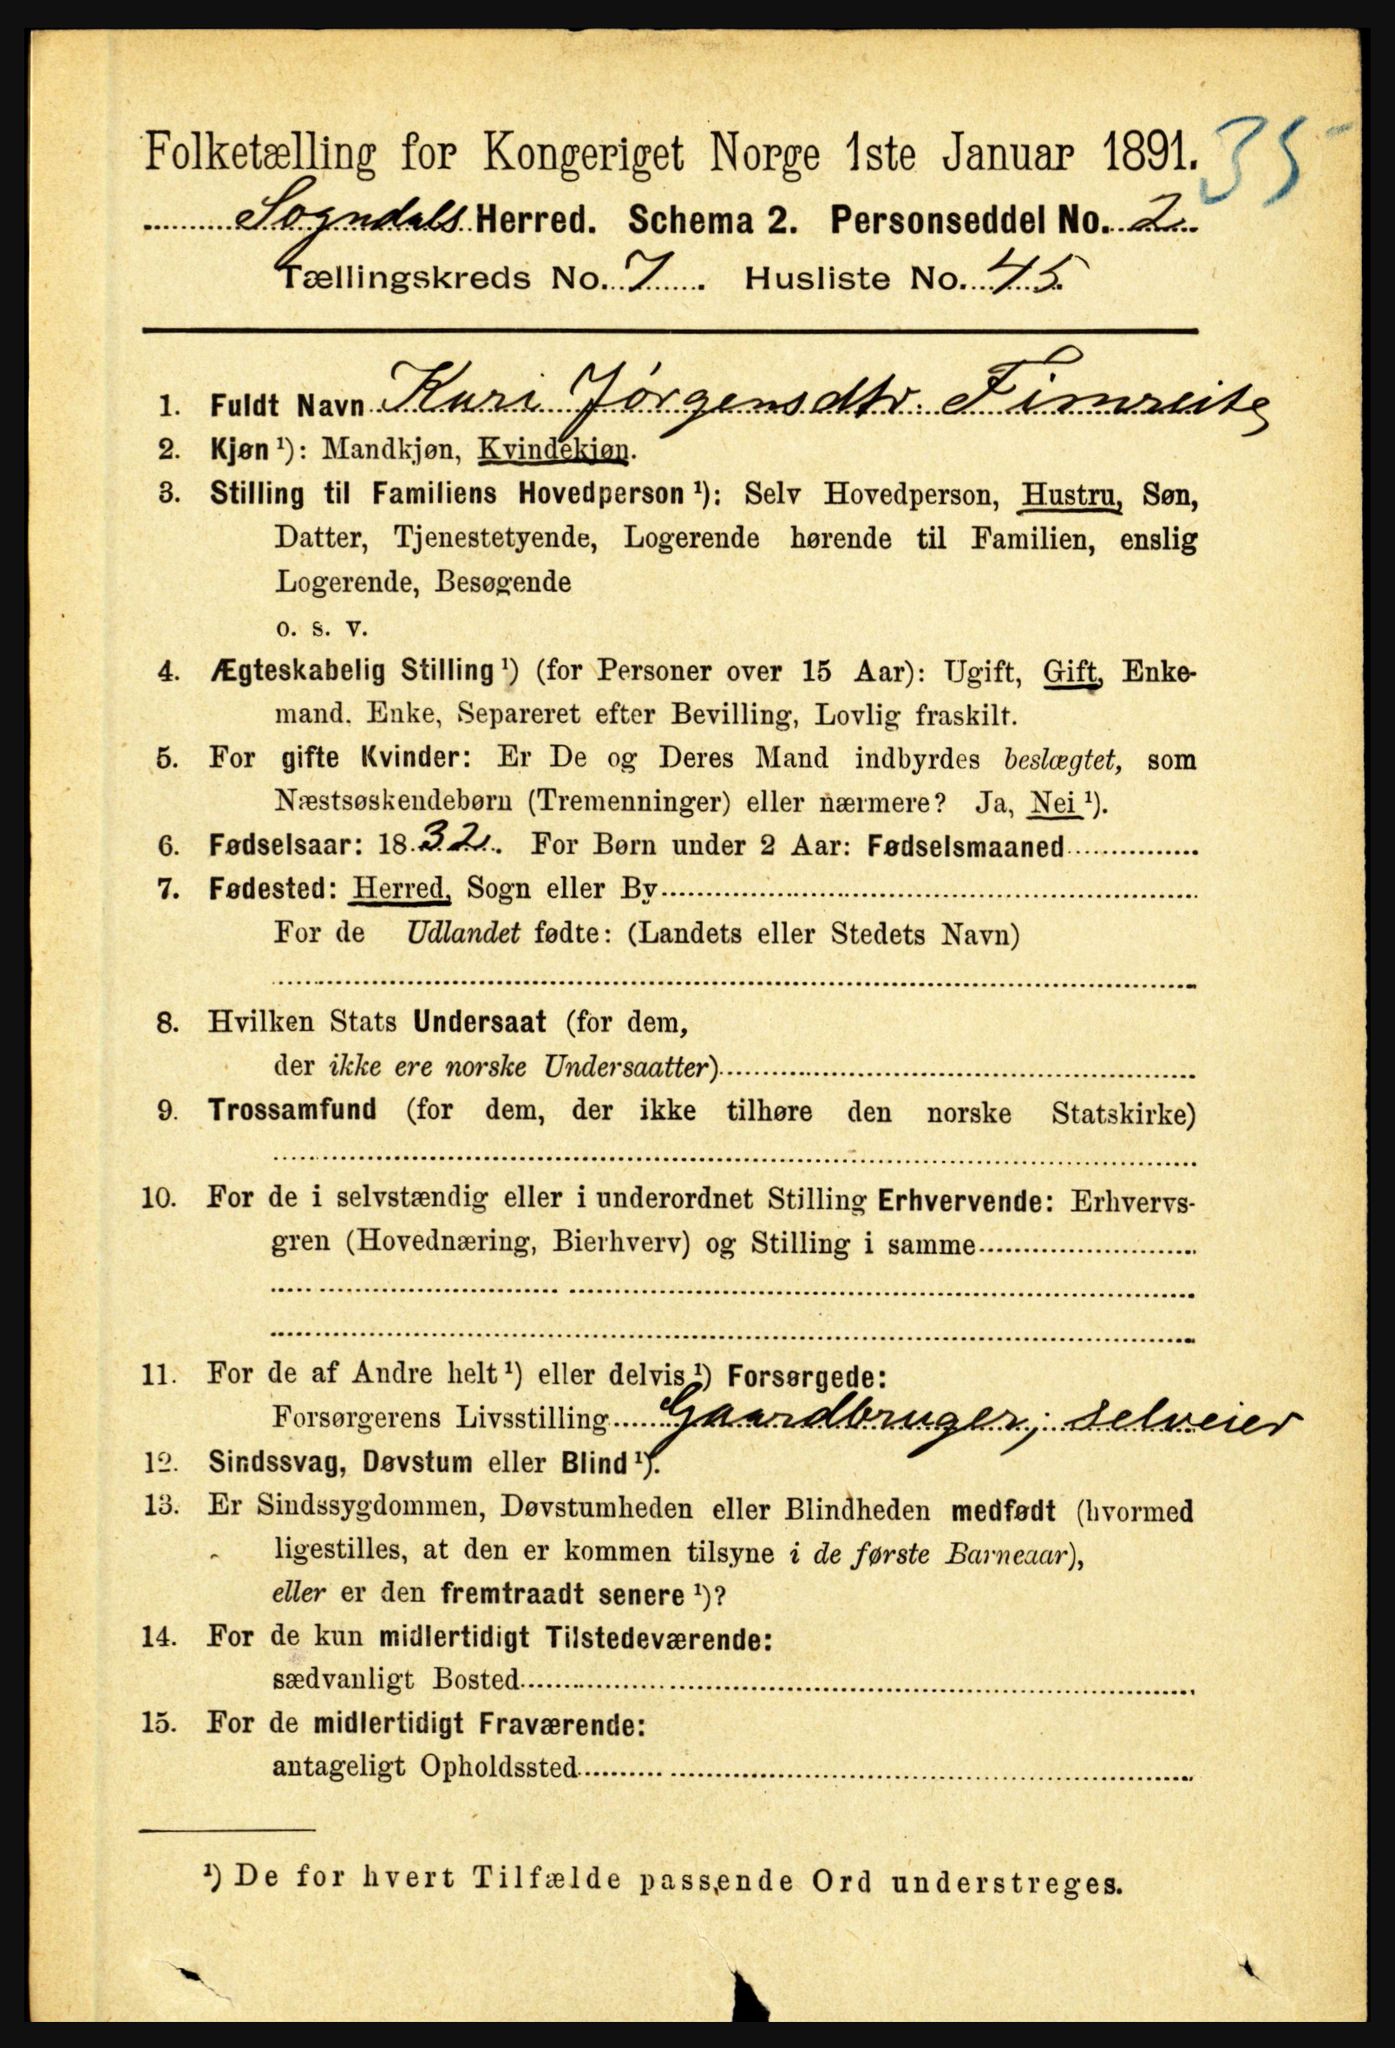 35
Folketælling for Kongeriget Norge 1ste Januar 1891.
Sogndals Herred. Schema 2. Personseddel No. 2.
Tællingskreds No. 7. Husliste No. 45.
1. Fuldt Navn Kari Jørgensdtr. Fimreite
2. Kjøn ¹): Mandkjøn, Kvindekjøn.
3. Stilling til Familiens Hovedperson ¹): Selv Hovedperson, Hustru, Søn,
Datter, Tjenestetyende, Logerende hørende til Familien, enslig
Logerende, Besøgende
o. s. v.
4. Ægteskabelig Stilling ¹) (for Personer over 15 Aar): Ugift, Gift, Enke-
mand, Enke, Separeret efter Bevilling, Lovlig fraskilt.
5. For gifte Kvinder: Er De og Deres Mand indbyrdes beslægtet, som
Næstsøskendebørn (Tremenninger) eller nærmere? Ja, Nei ¹).
6. Fødselsaar: 1832. For Børn under 2 Aar: Fødselsmaaned
7. Fødested: Herred, Sogn eller By
For de Udlandet fødte: (Landets eller Stedets Navn)
8. Hvilken Stats Undersaat (for dem,
der ikke ere norske Undersaatter)
9. Trossamfund (for dem, der ikke tilhøre den norske Statskirke)
10. For de i selvstændig eller i underordnet Stilling Erhvervende: Erhvervs-
gren (Hovednæring, Bierhverv) og Stilling i samme
11. For de af Andre helt ¹) eller delvis ¹) Forsørgede:
Forsørgerens Livsstilling Gaardbruger, selveier
12. Sindssvag, Døvstum eller Blind ¹).
13. Er Sindssygdommen, Døvstumheden eller Blindheden medfødt (hvormed
ligestilles, at den er kommen tilsyne i de første Barneaar),
eller er den fremtraadt senere ¹)?
14. For de kun midlertidigt Tilstedeværende:
sædvanligt Bosted
15. For de midlertidigt Fraværende:
antageligt Opholdssted
¹) De for hvert Tilfælde passende Ord understreges.